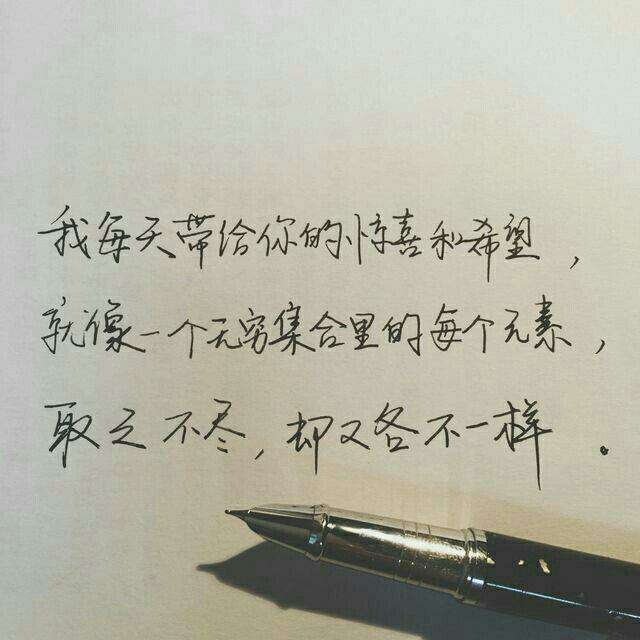 我每天带给你的惊喜和希望，
就像一个无穷集合里的每个元素，
取之不尽，却又各不一样．